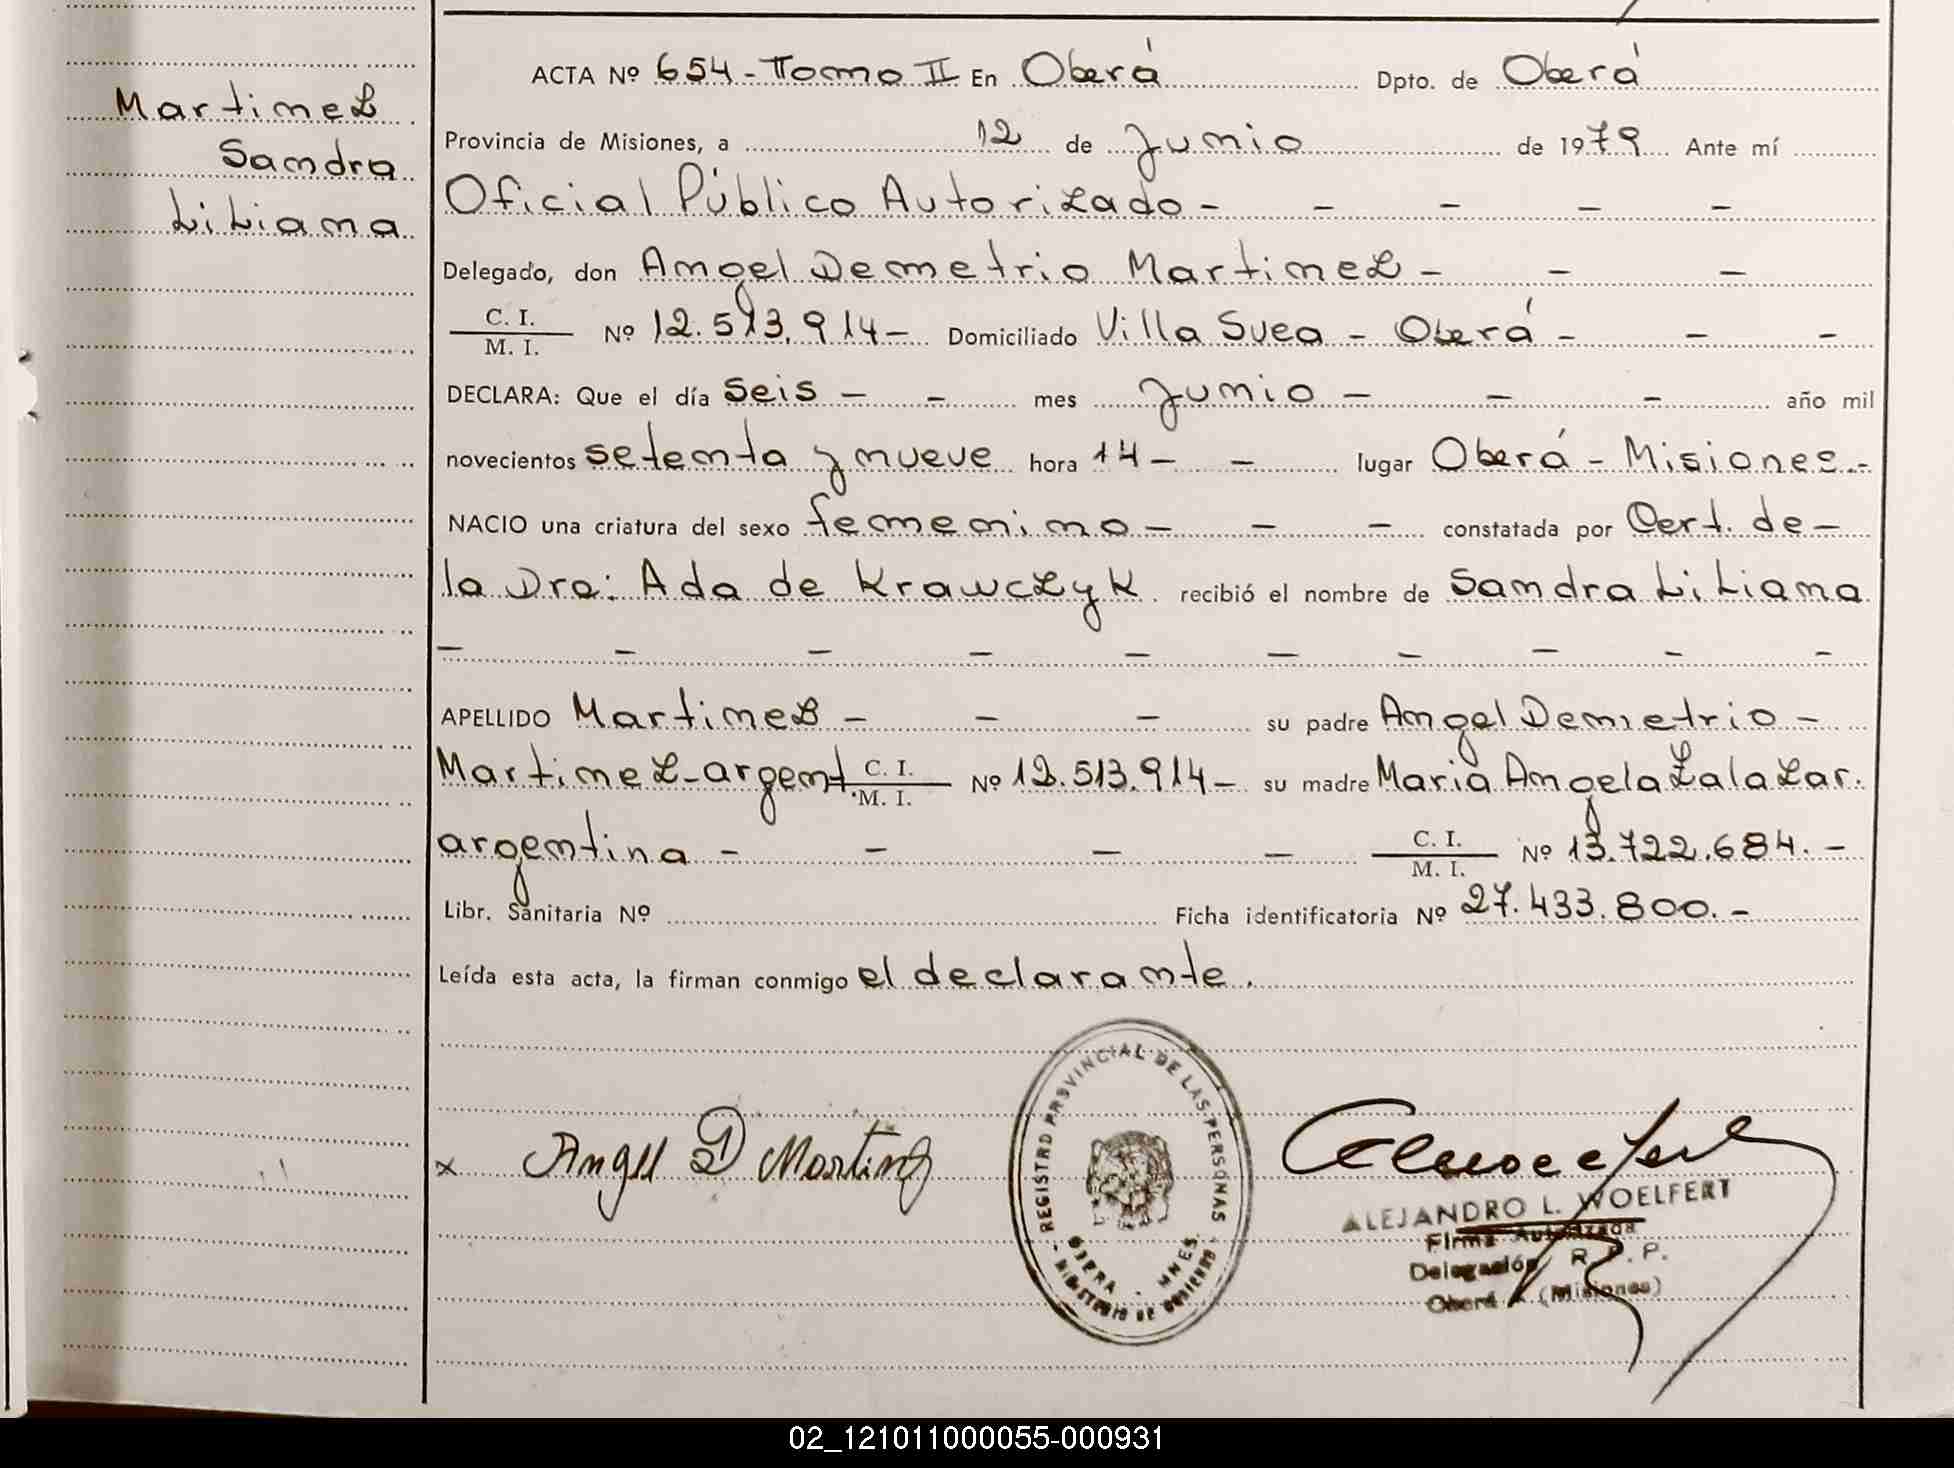 Martinez
Sandra
Liliana
ACTA Nº 654 - Tomo II En Oberá Dpto. de Oberá
Provincia de Misiones, a 12 de Junio de 1979 Ante mí
Oficial Público Autorizado - - - - -
Delegado, don Angel Demetrio Martinez - - -
C. I.
M. I.
Nº 12.513.914 - Domiciliado Villa Svea - Oberá - - -
DECLARA: Que el día seis - - mes Junio - - - año mil
novecientos setenta y nueve hora 14 - - lugar Oberá - Misiones.-
NACIO una criatura del sexo femenino - - - constatada por Cert. de -
la Dra: Ada de Krawczyk recibió el nombre de Sandra Liliana
- - - - - - - - - -
APELLIDO Martinez - - - su padre Angel Demetrio -
Martinez - argent. C. I.
M. I.
Nº 12.513.914 - su madre Maria Angela Zalazar.
argentina - - - - C. I.
M. I.
Nº 13.722.684. -
Libr. Sanitaria Nº Ficha identificatoria Nº 27.433.800. -
Leída esta acta, la firman conmigo el declarante.
REGISTRO PROVINCIAL DE LAS PERSONAS
OBERA - MNES
MINISTERIO DE GOBIERNO
x Angel D Martinez
ALEJANDRO L. WOELFERT
Firma Autorizada
Delegación R. P. P.
Oberá (Misiones)
02_121011000055-000931